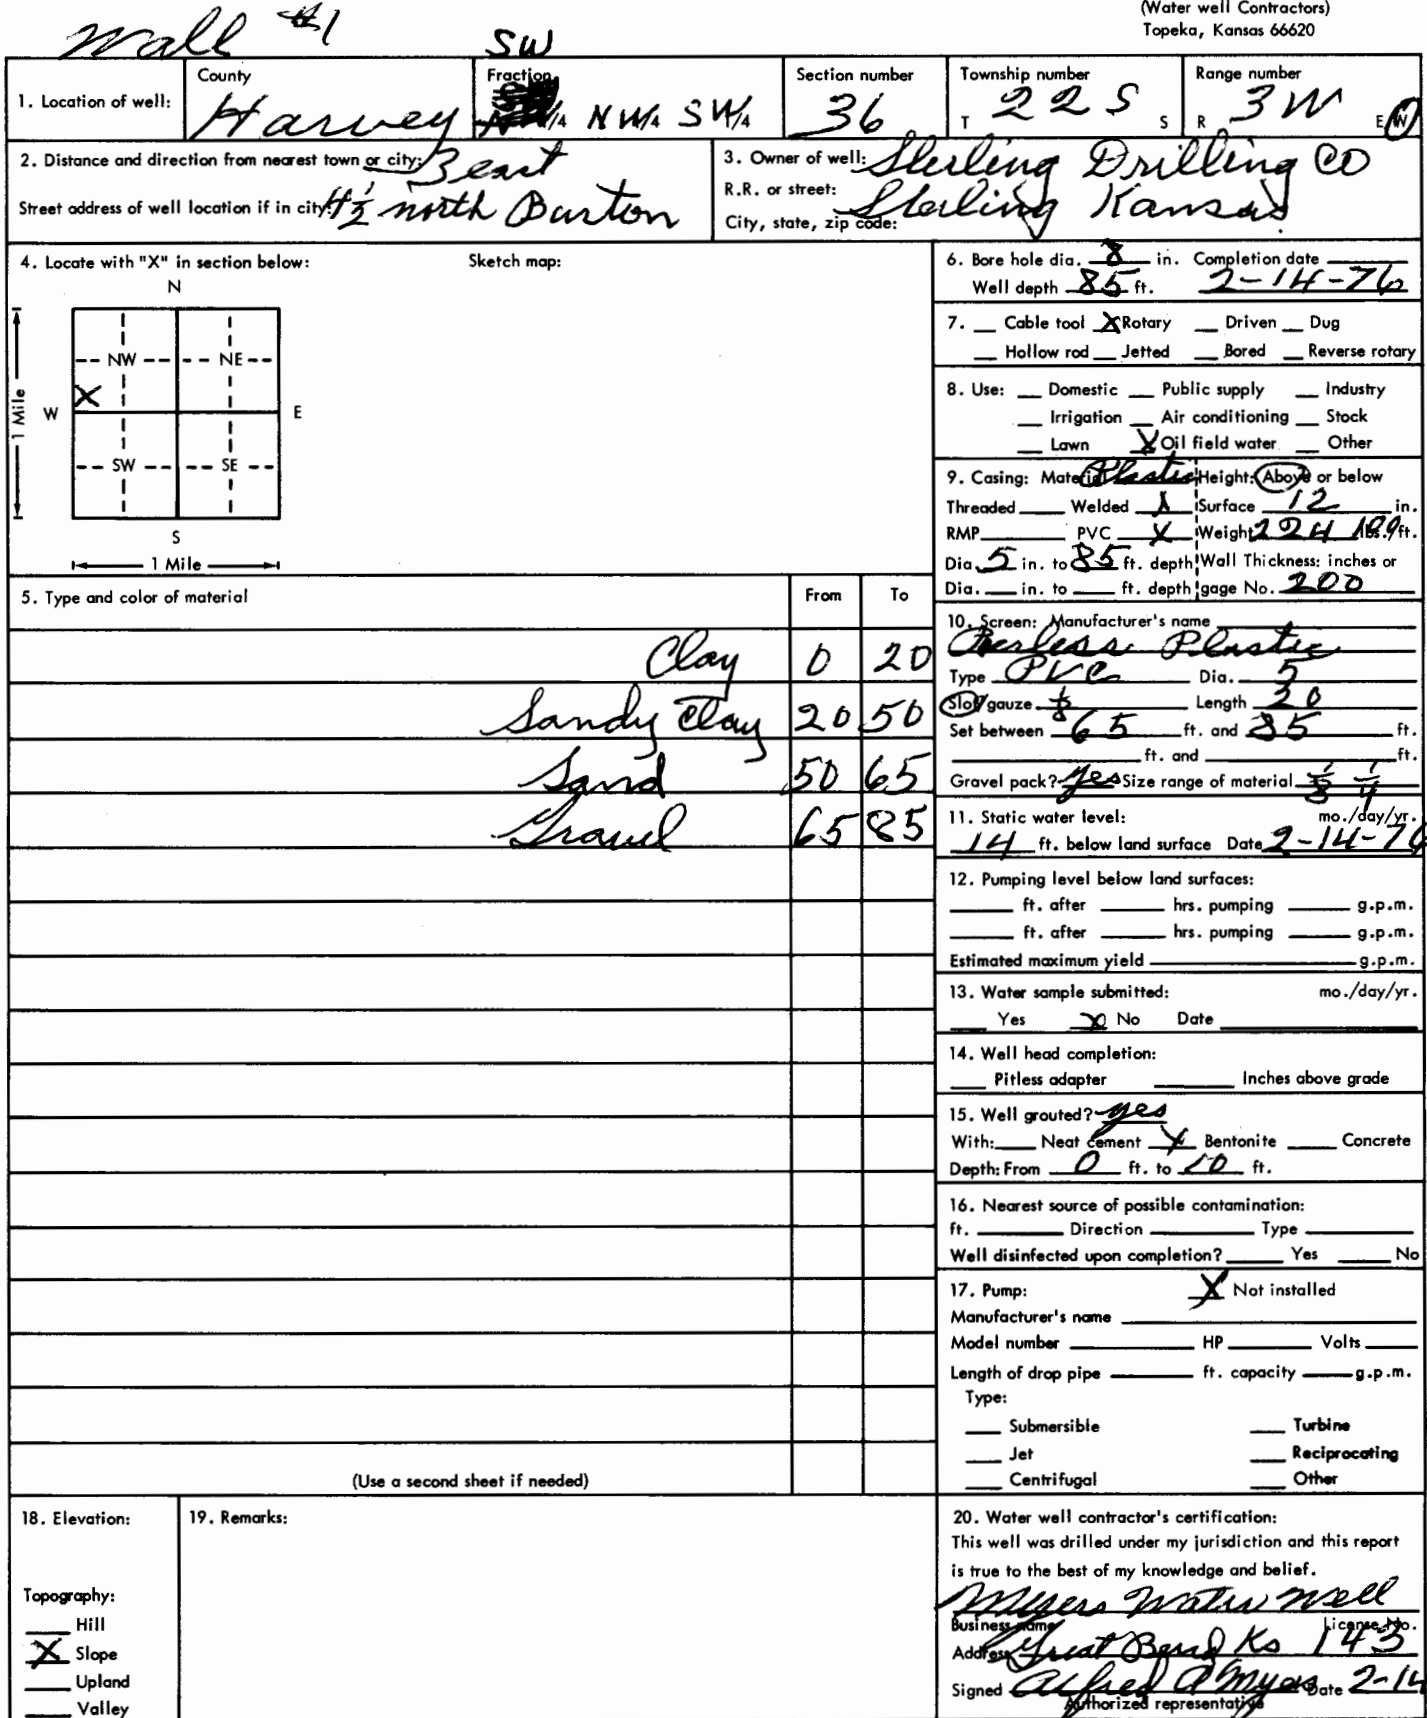 (Water well Contractors)
Topeka, Kansas 66620
Wall #1
SW
1. Location of well:
County
Harvey
Fraction
1/4 NW1/4 SW1/4
Section number
36
Township number
T 22 S S
Range number
R 3W E/W
2. Distance and direction from nearest town or city: 3 east
Street address of well location if in city: 4 1/2 north Burton
3. Owner of well: Sterling Drilling CO
R.R. or street:
City, state, zip code: Sterling Kansas
4. Locate with "X" in section below:
Sketch map:
N
NW
NE
X
W
E
1 Mile
SW
SE
S
1 Mile
5. Type and color of material
From
To
Clay 0 20
Sandy Clay 20 50
Sand 50 65
Gravel 65 85
(Use a second sheet if needed)
6. Bore hole dia. 8 in. Completion date
Well depth 85 ft. 2-14-76
7. Cable tool X Rotary Driven Dug
Hollow rod Jetted Bored Reverse rotary
8. Use: Domestic Public supply Industry
Irrigation Air conditioning Stock
Lawn X Oil field water Other
9. Casing: Material Plastic Height: Above or below
Threaded Welded X Surface 12 in.
RMP PVC X Weight 224 lbs./ft.
Dia. 5 in. to 85 ft. depth Wall Thickness: inches or
Dia. in. to ft. depth gage No. 200
10. Screen: Manufacturer's name
Peerless Plastic
Type PVC Dia. 5
Slot/gauze 1/8 Length 20
Set between 65 ft. and 85 ft.
ft. and ft.
Gravel pack? yes Size range of material 1/8 1/4
11. Static water level: mo./day/yr.
14 ft. below land surface Date 2-14-76
12. Pumping level below land surfaces:
ft. after hrs. pumping g.p.m.
ft. after hrs. pumping g.p.m.
Estimated maximum yield g.p.m.
13. Water sample submitted: mo./day/yr.
Yes X No Date
14. Well head completion:
Pitless adapter Inches above grade
15. Well grouted? yes
With: Neat cement X Bentonite Concrete
Depth: From 0 ft. to 10 ft.
16. Nearest source of possible contamination:
ft. Direction Type
Well disinfected upon completion? Yes No
17. Pump: X Not installed
Manufacturer's name
Model number HP Volts
Length of drop pipe ft. capacity g.p.m.
Type:
Submersible Turbine
Jet Reciprocating
Centrifugal Other
18. Elevation:
Topography:
Hill
X Slope
Upland
Valley
19. Remarks:
20. Water well contractor's certification:
This well was drilled under my jurisdiction and this report
is true to the best of my knowledge and belief.
Myers Water Well
Business name License No.
Address Great Bend Ks 143
Signed Alfred A Myers Date 2-14
Authorized representative